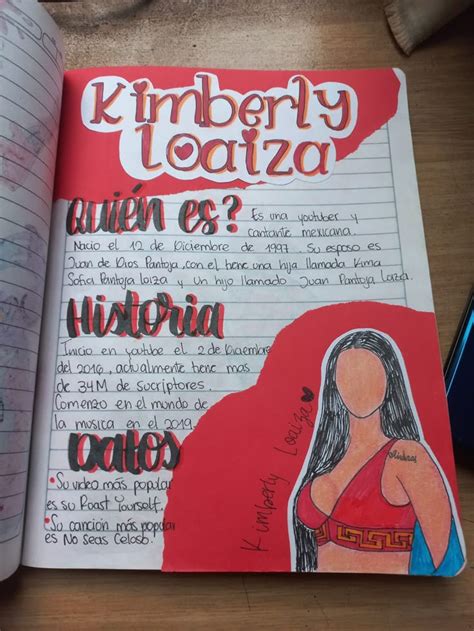 Kimberly
Loaiza
Quién es?
Es una youtuber y
cantante mexicana.
Nacio el 12 de Diciembre de 1997. Su esposo es
Juan de Dios Pantoja, con el tiene una hija llamada Kima
Sofia Pantoja loiza y un hijo llamado Juan Pantoja Loiza.
Historia
Inicio en youtube el 2 de Diciembre
del 2016, actualmente tiene mas
de 34M de sucriptores.
Comenzo en el mundo de
la musica en el 2019.
Datos
Su video más popular
es su Roast Yourself.
Su cancion más popular
es No Seas Celoso.
Kimberly Loaiza